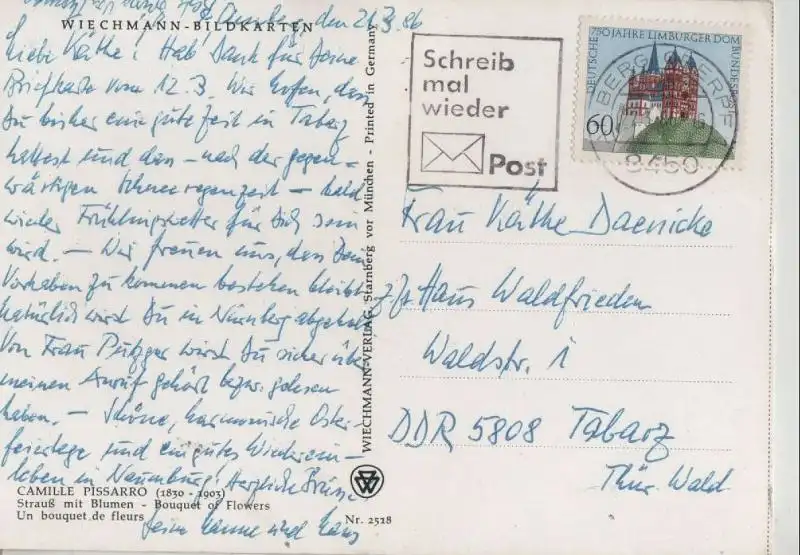 den 21.3.86
WIECHMANN-BILDKARTEN
Liebe Käthe! Hab' Dank für Deine
Briefkarte vom 12.3. Wir hoffen, dass
Du bisher eine gute Zeit in Tabarz
hattest und dass – nach der gegen-
wärtigen Schneeregenzeit – bald
wieder Frühlingswetter für Dich sein
wird. – Wir freuen uns, dass Dein
Vorhaben zu kommen bestehen bleibt.
Natürlich wirst Du in Nürnberg abgeholt.
Von Frau Putzger wirst Du sicher über
meinen Anruf gehört bezw. gelesen
haben. – Schöne, harmonische Oster-
feiertage und ein gutes Wiederein-
leben in Naumburg! Herzliche Grüsse
Hanne und Hans
CAMILLE PISSARRO (1830 - 1903)
Strauß mit Blumen - Bouquet of Flowers
Un bouquet de fleurs
Nr. 2518
WIECHMANN-VERLAG, Starnberg vor München - Printed in Germany
Schreib
mal
wieder
Post
750 JAHRE LIMBURGER DOM
DEUTSCHE BUNDESPOST
60
8450
Frau Käthe Daenicke
z. Zt. Haus Waldfrieden
Waldstr. 1
DDR 5808 Tabarz
Thür. Wald